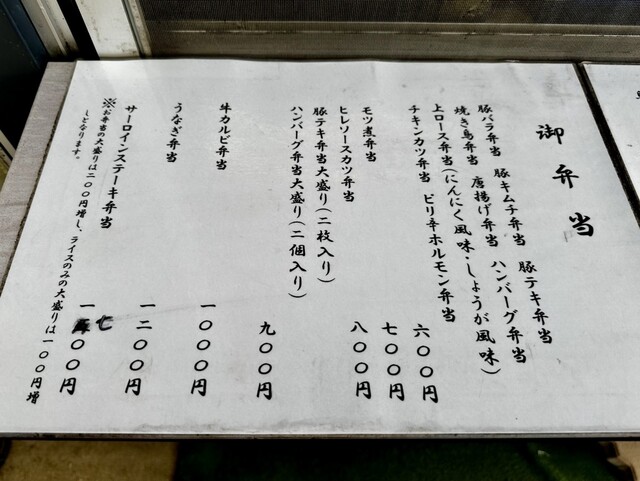 御弁当
豚バラ弁当 豚キムチ弁当 豚テキ弁当
焼き鳥弁当 唐揚げ弁当 ハンバーグ弁当
上ロース弁当(にんにく風味・しょうが風味)
チキンカツ弁当 ピリ辛ホルモン弁当 六〇〇円
モツ煮弁当 七〇〇円
ヒレソースカツ弁当 八〇〇円
豚テキ弁当大盛り(二枚入り)
ハンバーグ弁当大盛り(二個入り) 九〇〇円
牛カルビ弁当 一〇〇〇円
うなぎ弁当 一二〇〇円
サーロインステーキ弁当 一七〇〇円
※お弁当の大盛りは二〇〇円増し、ライスのみの大盛りは一〇〇円増
しとなります。